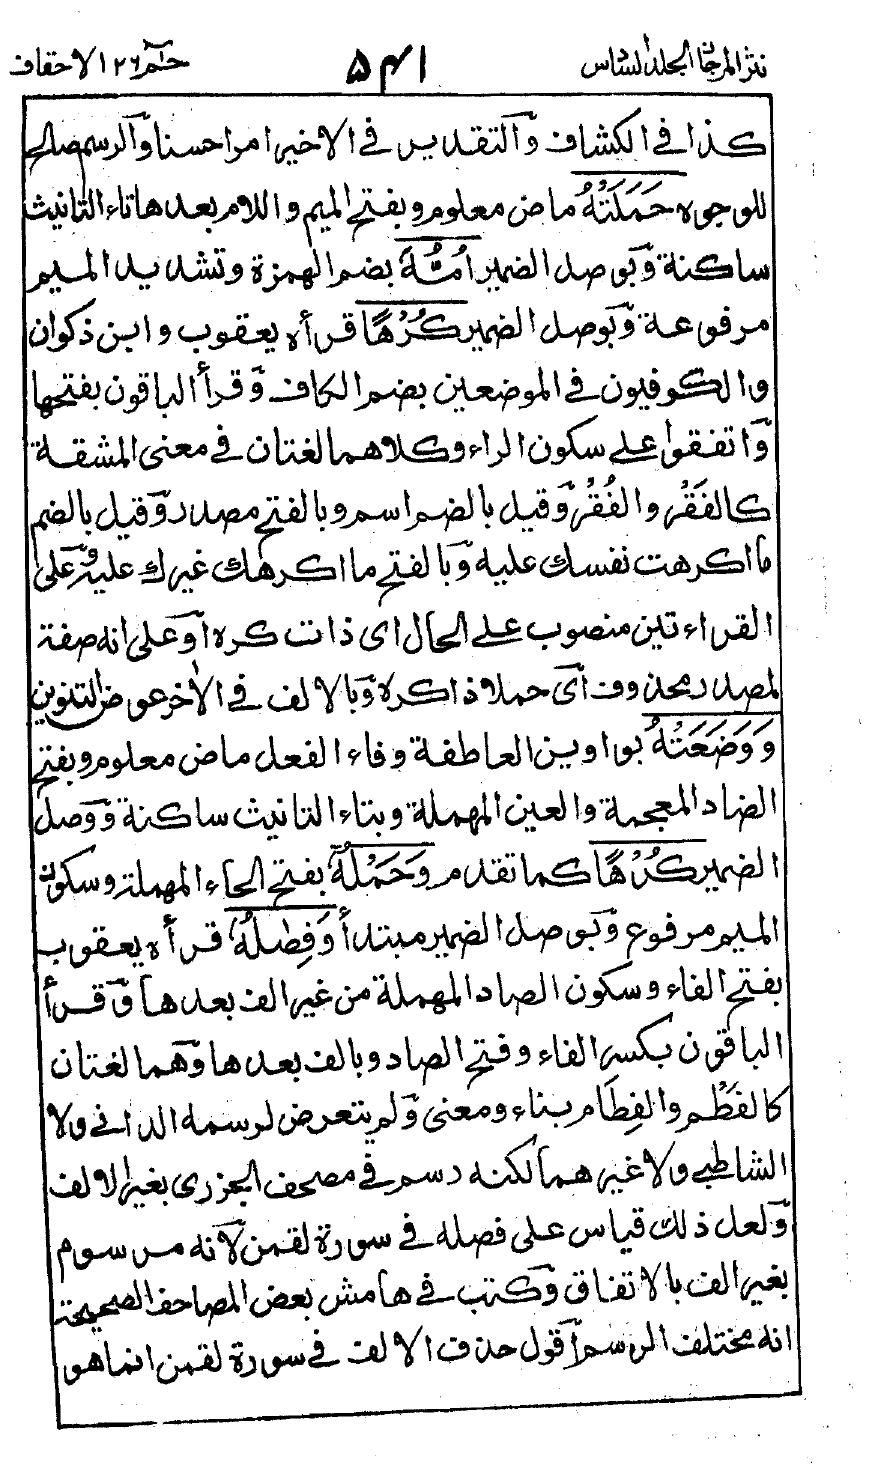 نثر المرجان المجلد السادس
٥٤١
حٰم ٢٦ الاحقاف
كذا في الكشاف وٓالتقدير في الاخير امرا حسنا وٓالرسم صالح
للوجوه حَمَلَتْهُ ماض معلوم وبفتح الميم واللام بعدها تاء التانيث
ساكنة وٓبوصل الضمير اُمُّهٗ بضم الهمزة وتشديد الميم
مرفوعة وٓبوصل الضمير كُرْهًا قرأه يعقوب وابن ذكوان
والكوفيون في الموضعين بضم الكاف وٓقرأ الباقون بفتحها
وٓاتفقوا على سكون الراء وكلاهما لغتان في معنى المشقة
كالفَقْر والفُقْر وٓقيل بالضم اسم وبالفتح مصدر وٓقيل بالضم
ما اكرهت نفسك عليه وٓبالفتح ما اكرهك غيرك عليه وٓعلى
القراءتين منصوب على الحال اى ذات كره اوٓعلى انه صفة
لمصدر محذوف اىٓ حملا ذا كره وٓبالالف في الاٰخر عوض التنوين
وَوَضَعَتْهُ بواوين العاطفة وفاء الفعل ماض معلوم وبفتح
الضاد المعجمة والعين المهملة وبتاء التانيث ساكنة وٓوصل
الضمير كُرْهًا كما تقدم وَحَمْلُهٗ بفتح الحاء المهملة وسكون
الميم مرفوع وٓبوصل الضمير مبتدأ وَفِصٰلُهٗ قرأه يعقوب
بفتح الفاء وسكون الصاد المهملة من غير الف بعدها وٓقرأ
الباقون بكسر الفاء وفتح الصاد وبالف بعدها وٓهما لغتان
كالفَطْم والفِطَام بناء ومعنى وٓلم يتعرض لرسمه الداني ولا
الشاطبي ولا غيرهما لكنه رسم في مصحف الجزرى بغير الالف
وٓلعل ذلك قياس على فصله في سورة لقمن لانٓه مرسوم
بغير الف بالاتفاق وٓكتب في هامش بعض المصاحف الصحيحة
انه مختلف الرسم آقول حذف الالف في سورة لقمن انما هو